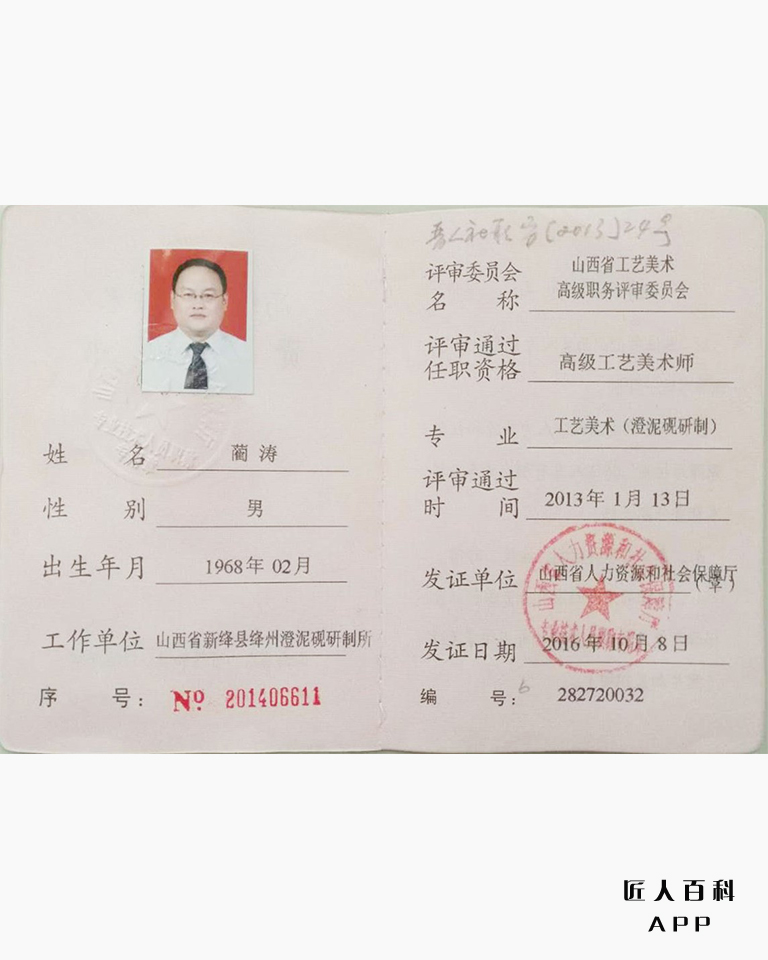 姓 名 蔺涛
性 别 男
出生年月 1968年02月
工作单位 山西省新绛县绛州澄泥砚研制所
序 号： No. 201406611
晋人社职字[2013]24号
评审委员会名 称 山西省工艺美术
高级职务评审委员会
评审通过任职资格 高级工艺美术师
专 业 工艺美术（澄泥砚研制）
评审通过时 间 2013年1月13日
发证单位 山西省人力资源和社会保障厅
（章）
发证日期 2016年10月8日
编 号： 6 282720032
匠人百科
APP